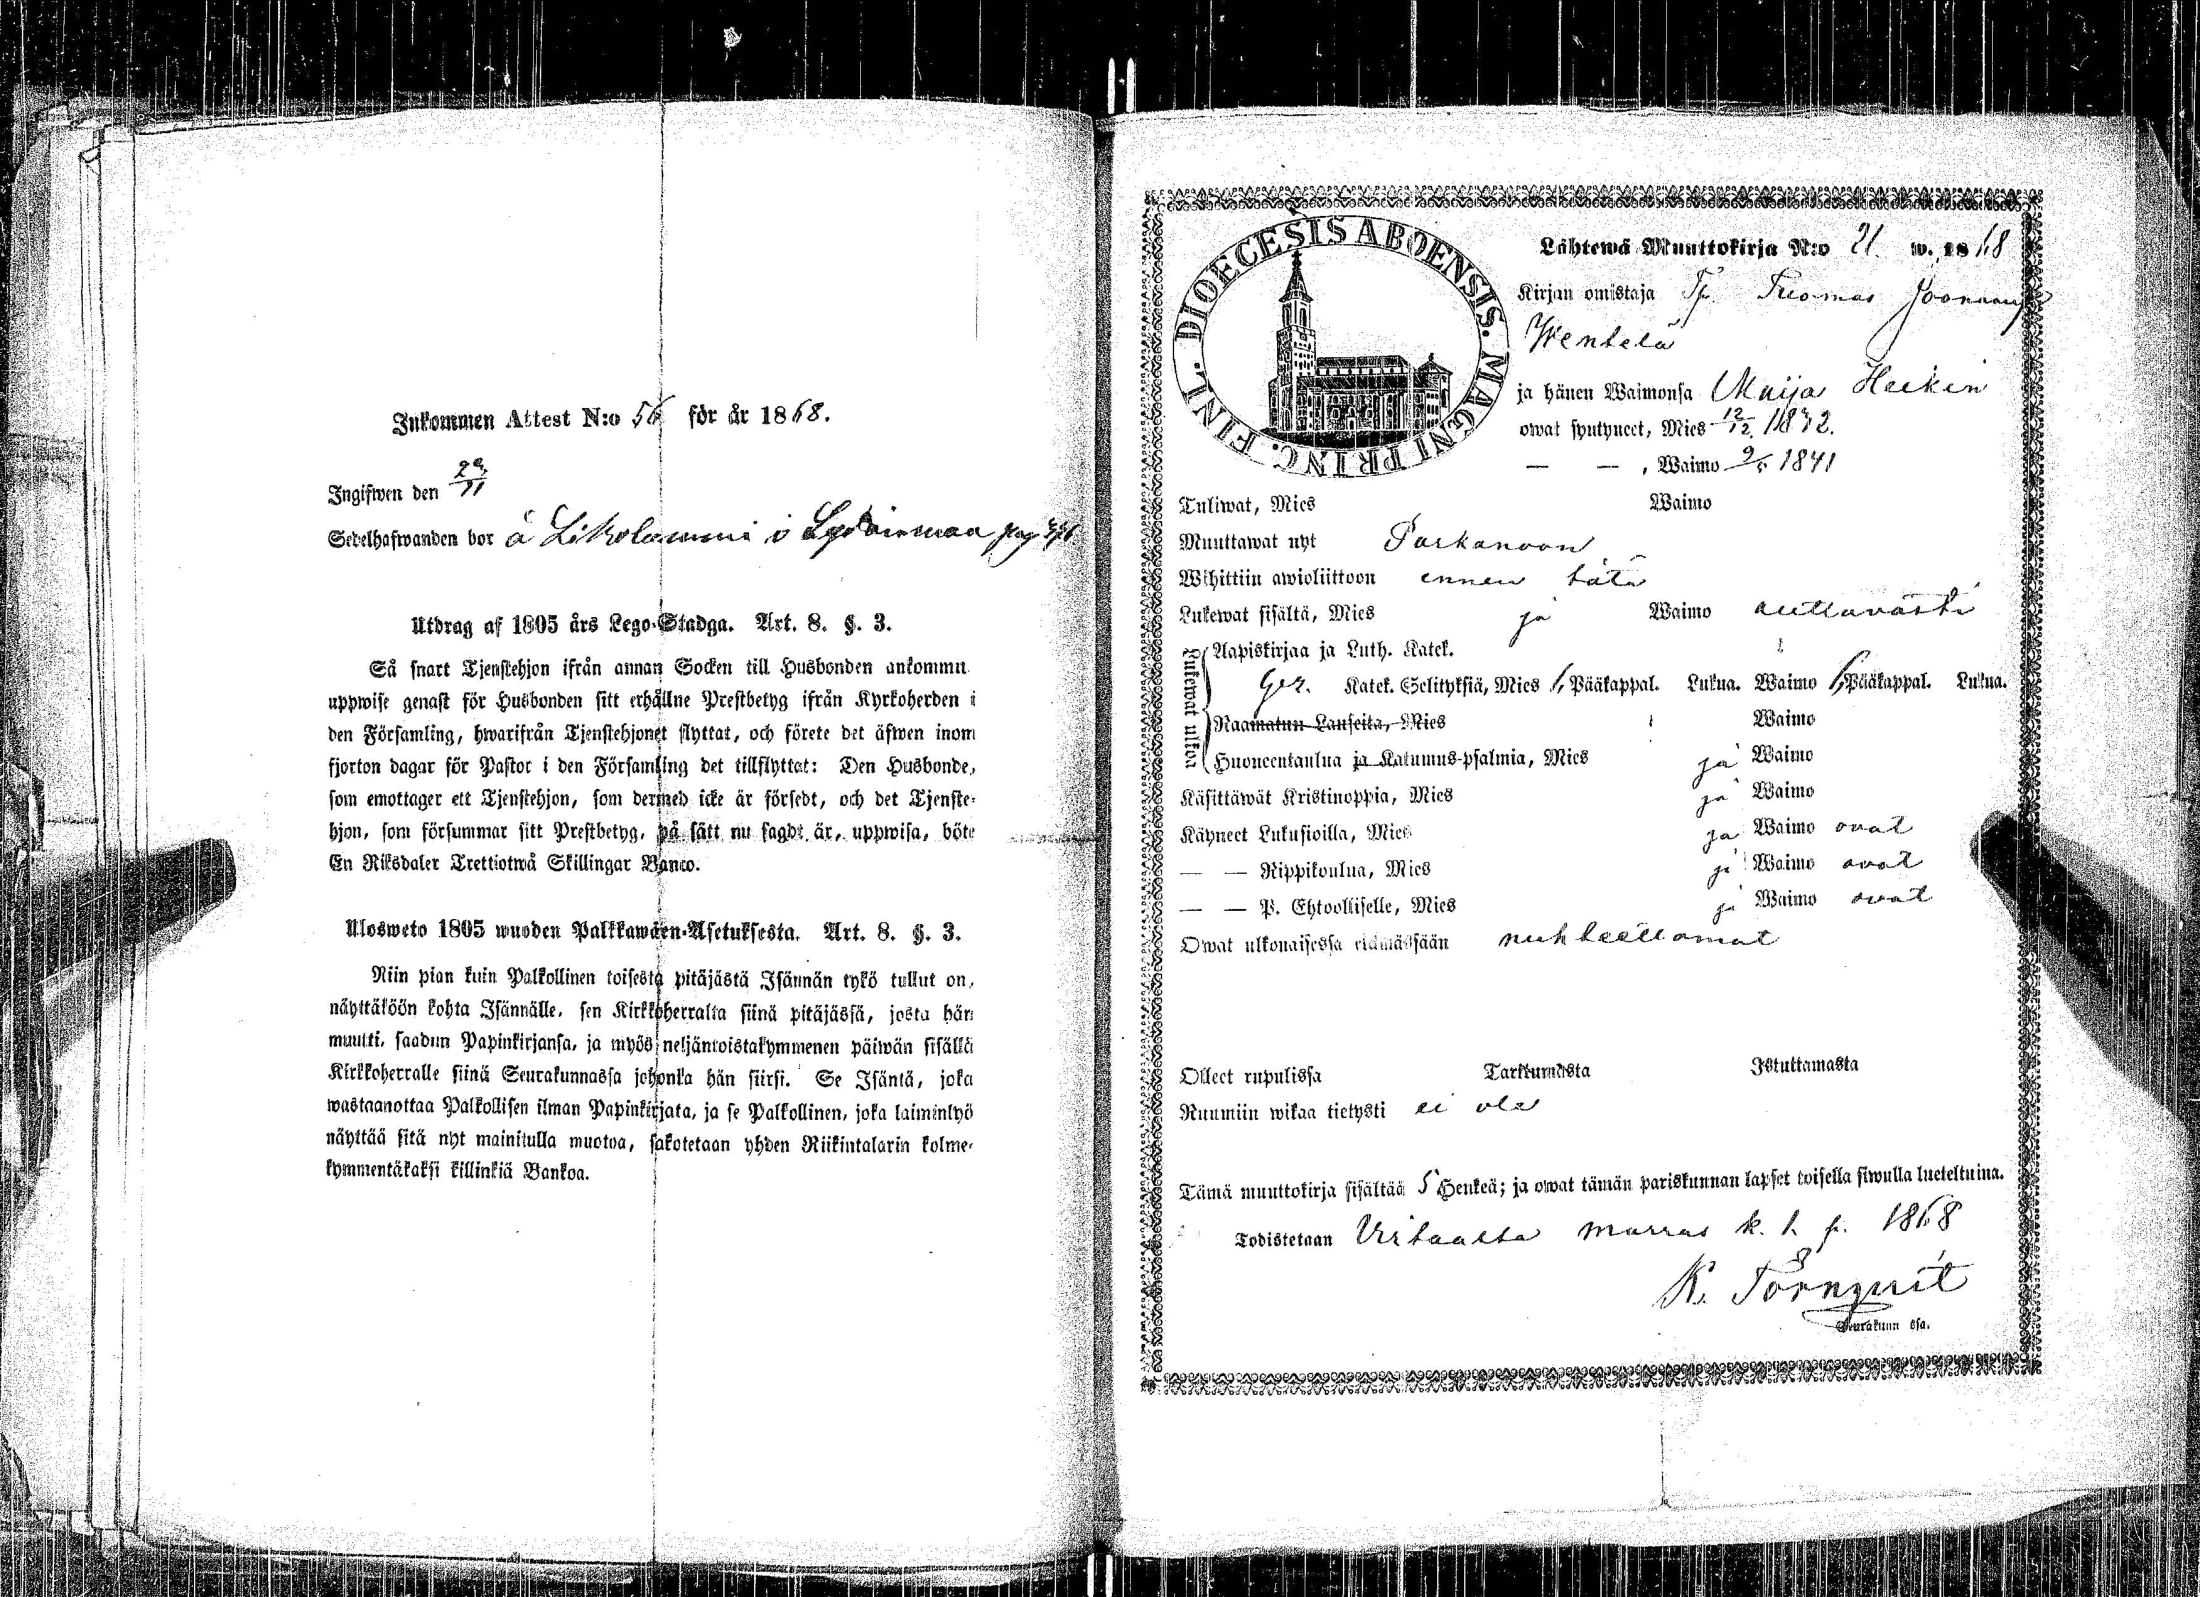 Inkommen Attest N:o 56 för år 1868.
Ingifwen den 29/11
Sedelhafwanden bor å Likolammi i
Utdrag af 1805 års Lego-Stadga. Art. 8. §. 3.
Så snart Tjenstehjon ifrån annan Socken till Husbonden ankommit
uppwise genast för Husbonden sitt erhållne Prestbetyg ifrån Kyrkoherden i
den Församling, hwarifrån Tjenstehjonet flyttat, och förete det äfwen inom
fjorton dagar för Pastor i den Församling det tillflyttat: Den Husbonde,
som emottager ett Tjenstehjon, som dermed icke är försedt, och det Tjenste-
hjon, som försummar sitt Prestbetyg, på sätt nu sagdt är, uppwisa, böte
En Riksdaler Trettiotwå Skillingar Banco.
Ulosweto 1805 wuoden Palkkawäen-Asetuksesta. Art. 8. §. 3.
Niin pian kuin Palkollinen toisesta pitäjästä Isännän tykö tullut on,
näyttäköön kohta Isännälle, sen Kirkkoherralta siinä pitäjässä, josta hän
muutti, saadun Papinkirjansa, ja myös neljäntoistakymmenen päiwän sisällä
Kirkkoherralle siinä Seurakunnassa johonka hän siirsi. Se Isäntä, joka
wastaanottaa Palkollisen ilman Papinkirjata, ja se Palkollinen, joka laiminlyö
näyttää sitä nyt mainitulla muotoa, sakotetaan yhden Riikintalarin kolme-
kymmentäkaksi killinkiä Bankoa.
DIOECESIS ABOENSIS. MAGNI PRINC. FINL.
Lähtewä Muuttokirja N:o 21. w. 1868
Kirjan omistaja Tp. Tuomas
Wentelä
ja hänen Waimonsa Maija Heikin
owat syntyneet, Mies 12/12 1832.
— — , Waimo 9/5 1841
Tuliwat, Mies Waimo
Muuttawat nyt Parkanoon
Wihittiin awioliittoon ennen tätä
Lukewat sisältä, Mies ja Waimo auttavasti
Lukewat ulkoa
Aapiskirjaa ja Luth. Katek.
Katek. Selityksiä, Mies Pääkappal. Lukua. Waimo Pääkappal. Lukua.
Raamatun Lauseita, Mies Waimo
Huoneentaulua ja Katumus-psalmia, Mies ja Waimo
Käsittäwät Kristinoppia, Mies ja Waimo
Käyneet Lukusioilla, Mies ja Waimo ovat
— — Rippikoulua, Mies ja Waimo ovat
— — P. Ehtoolliselle, Mies ja Waimo ovat
Owat ulkonaisessa elämässään nuhteettomat
Olleet rupulissa Tarttumasta Istuttamasta
Ruumiin wikaa tietysti ei ole
Tämä muuttokirja sisältää 5 Henkeä; ja owat tämän pariskunnan lapset toisella siwulla lueteltuina.
Todistetaan Virtaalta marras k. 1. p. 1868
K. Törnqvist
Seurakunn ssa.